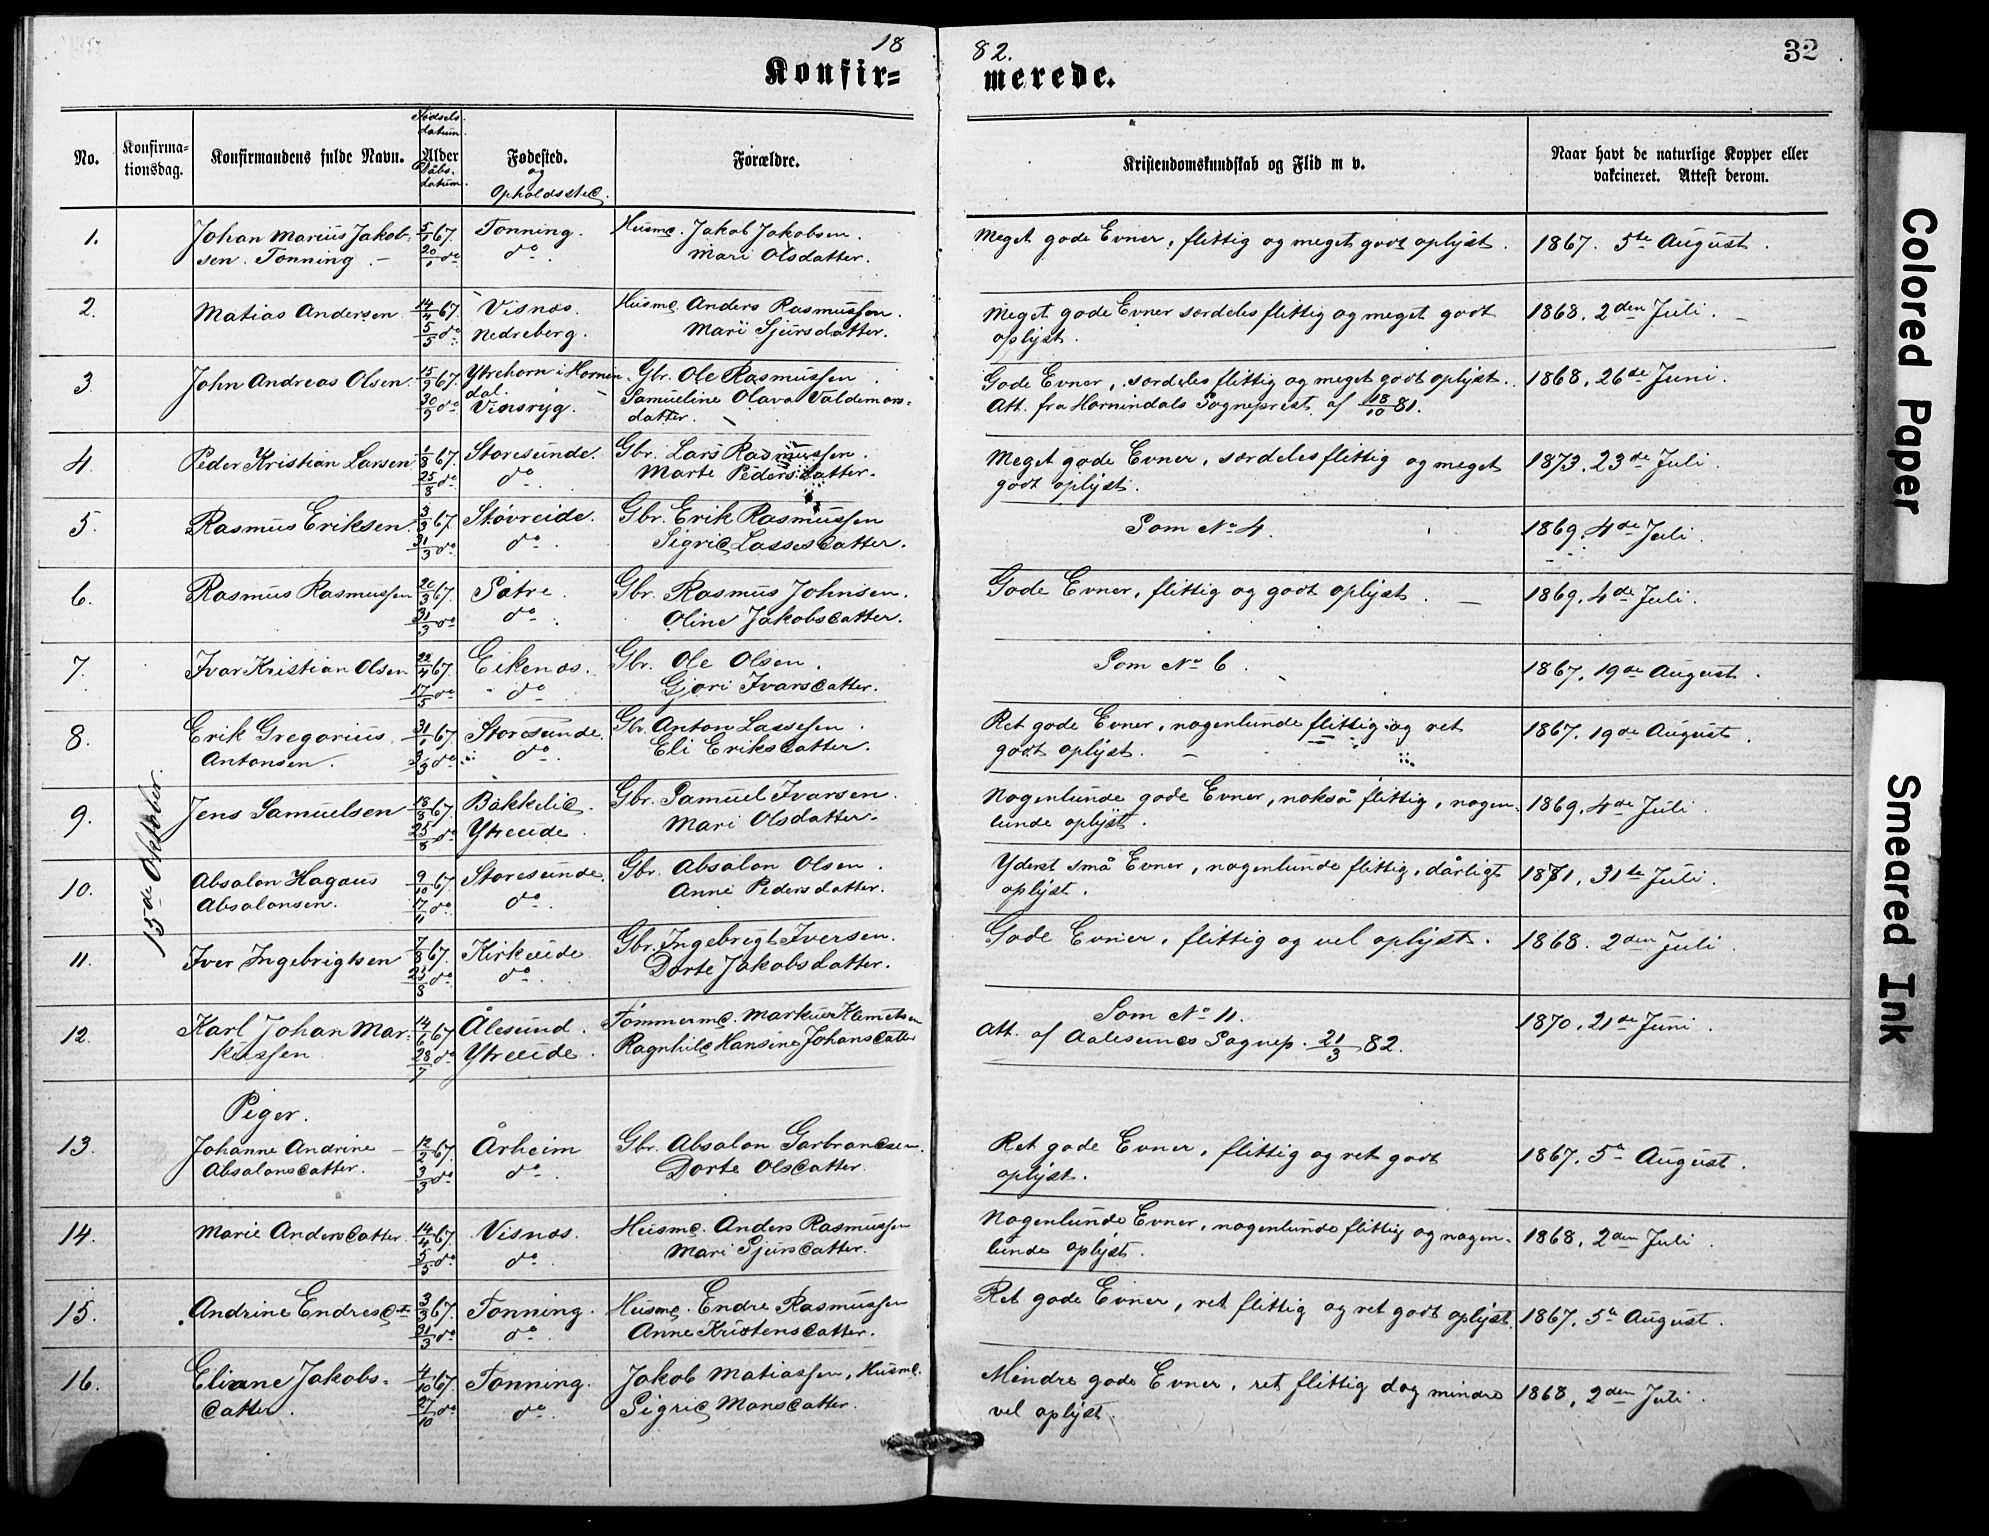 18 82. 32
Konfir= merede.
No. Konfirma-tionsdag. Konfirmandens fulde Navn. Fødsels datum Alder Dåbs-datum. Fødested. og Opholdssted. Forældre. Kristendomskundskab og Flid m v. Naar havt de naturlige Kopper eller vakcineret. Attest derom.
15de Oktober.
1. Johan Marius Jakob- 67. Tonning. Husmd. Jakob Jakobsen Meget gode Evner, flittig og meget godt oplyst. 1867. 5te August.
sen. Tonning. do do Mari Olsdatter.
2. Matias Andersen 14/4 67. Visnæs. Husmd. Anders Rasmussen. Meget gode Evner særdeles flittig og meget godt 1868. 2den Juli.
5/5 do. Nedreberg. Mari Sjursdatter. oplyst.
3. John Andreas Olsen 15/9 67. Ytrehorn i Hornin Gbr. Ole Rasmussen. Gode Evner, særdeles flittig og meget godt oplyst. 1868. 26de Juni.
dal. Samueline Olava Valdemars-
30/9 do Vinsryg. datter. Att. fra Hornindals Sogneprest af 18/10 81.
4. Peder Kristian Larsen 1/8 67. Storesunde. Gbr. Lars Rasmussen. Meget gode Evner, særdeles flittig og meget 1873. 23de Juli.
25/8 do. do. Marte Pedersdatter. godt oplyst.
5. Rasmus Eriksen 3/3 67. Støvreide. Gbr. Erik Rasmussen Som No. 4. 1869. 4de Juli.
31/3 do. do. Sigrid Lassesdatter.
6. Rasmus Rasmussen 20/3 67. Sætre. Gbr. Rasmus Johnsen. Gode Evner, flittig og godt oplyst. 1869. 4de Juli.
31/3 do. do. Oline Jakobsdatter.
7. Ivar Kristian Olsen 22/4 67. Eikenæs. Gbr. Ole Olsen. Som No. 6. 1867. 19de August.
17/5 do. do. Gjøri Ivarsdatter.
8. Erik Gregorius 31/1 67. Storesunde. Gbr. Anton Lassesen. Ret gode Evner, nogenlunde flittig og ret 1867. 19de August.
Antonsen. 3/3 do. do. Eli Eriksdatter. godt oplyst.
9. Jens Samuelsen 18/8 67. Bakkelid. Gbr. Samuel Ivarsen. Nogenlunde gode Evner, nokså flittig, nogen- 1869. 4de Juli
25/8 do. Ytreeide. Mari Olsdatter. lunde oplyst.
10. Absalon Hagaus 9/10 67. Storesunde. Gbr. Absalon Olsen. Yderst små Evner, nogenlunde flittig, dårligt 1871. 31te Juli.
Absalonsen. 17/11 do. do. Anne Pedersdatter. oplyst.
11. Iver Ingebrigtsen 7/8 67. Kirkeeide. Gbr. Ingebrigt Iversen. Gode Evner, flittig og vel oplyst. 1868. 2den Juli.
23/8 do. do. Dorte Jakobsdatter.
12. Karl Johan Mar- 14/6 67. Ålesund. Tømmermd. Markus Klemetsen Som No. 11. 1870. 21de Juni.
kussen. 28/7 do. Ytreeide. Ragnhild Hansine Johansdatter Att. af Aalesunds Sognep. 21/3 82.
Piger.
13. Johanne Andrine 12/2 67. Årheim Gbr. Absalon Garbrandsen. Ret gode Evner, flittig og ret godt 1867. 5te August.
Absalonsdatter. 3/3 do. do. Dorte Olsdatter. oplyst.
14. Marie Andersdatter. 14/4 67. Visnæs. Husmd. Anders Rasmussen Nogenlunde Evner, nogenlunde flittig og nogen- 1868. 2den Juli.
5/5 do. do. Mari Sjursdatter. lunde oplyst.
15. Andrine Endresdt. 3/3 67. Tonning. Husmd. Endre Rasmussen Ret gode Evner, ret flittig og ret godt oplyst. 1867. 5te August.
31/3 do. do. Anne Kristensdatter.
16. Eliane Jakobs- 4/10 67. Tonning. Jakob Matiassen, Husmd. Mindre gode Evner, ret flittig dog mindre 1868. 2den Juli.
datter. 27/10 do. do. Sigrid Monsdatter. vel oplyst.
Colored Paper
Smeared Ink